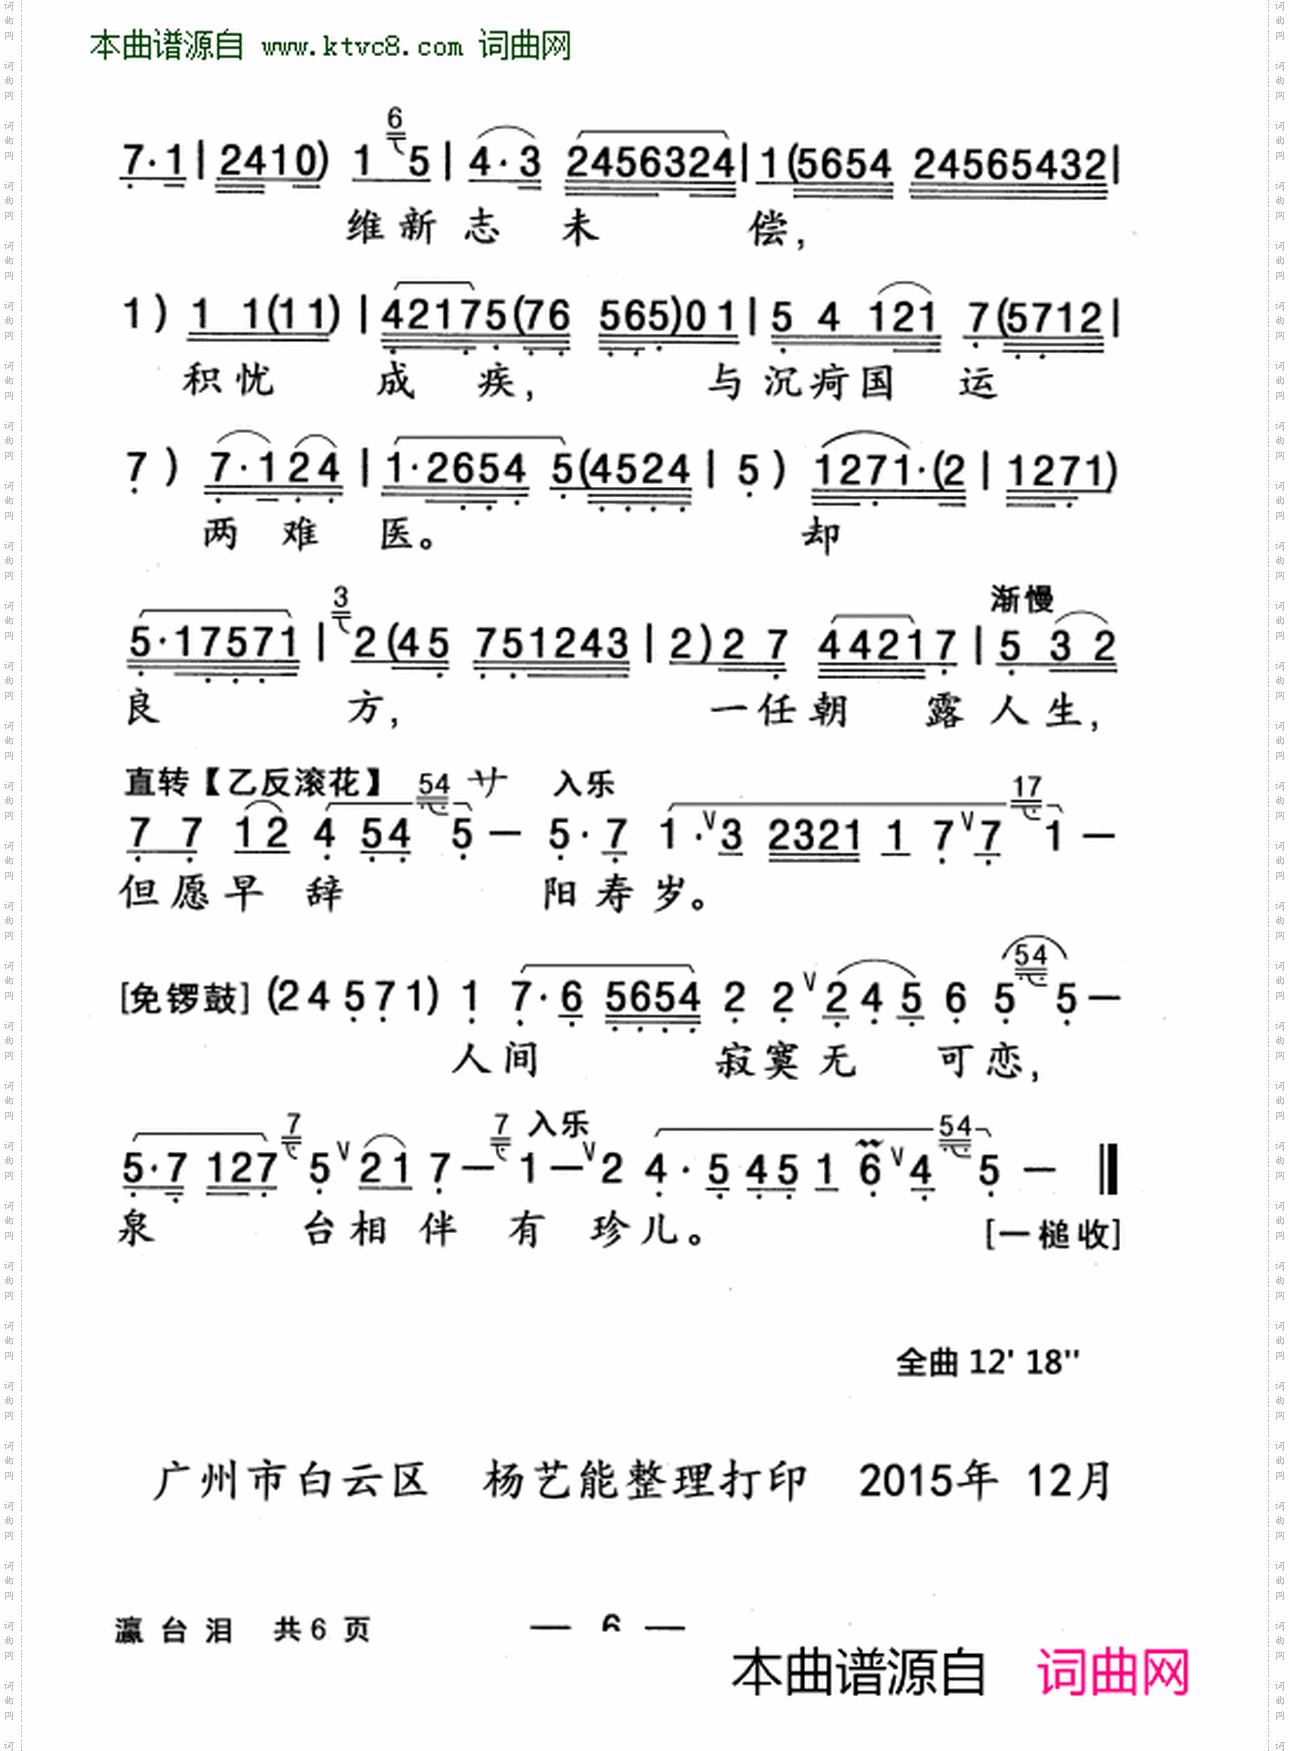 本曲谱源自 www.ktvc8.com 词曲网
6
7·1 | 2410) 1 5 | 4·3 2456324 | 1(5654 24565432 |
维新志 未 偿，
1) 1 1(11) | 42175(76 565)01 | 5 4 121 7(5712 |
积忧 成 疾， 与沉疴国 运
7) 7·124 | 1·2654 5(4524 | 5) 1271·(2 | 1271)
两 难 医。 却
3 渐慢
5·17571 | 2(45 751243 | 2)2 7 44217 | 5 32
良 方， 一任朝 露人生，
直转【乙反滚花】 54 サ 入乐 17
7 7 12 4 54 5 — 5·7 1·V3 2321 1 7V7 1 —
但愿早 辞 阳寿岁。
54
[免锣鼓] (24571) 1 7·6 5654 2 2V245 6 5 5 —
人间 寂寞无 可恋，
7 7 入乐 54
5·7 127 5V21 7 — 1 —V2 4·5 45 1 6V4 5 —
泉 台相 伴 有 珍儿。 [一槌收]
全曲 12' 18''
广州市白云区 杨艺能整理打印 2015年 12月
瀛台泪 共6页 — 6 —
本曲谱源自 词曲网